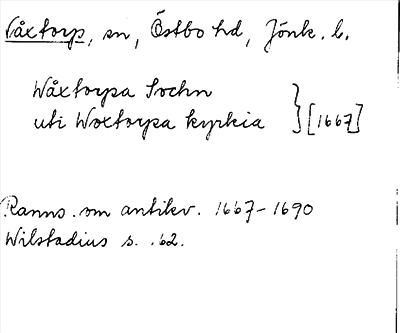 Våxtorp, sn, Östbo hd, Jönk. l.
Wåxtorpa Sochn
uti Woxtorpa kyrkia } [1667]
Ranns. om antikv. 1667-1690
Wilstadius s. 62.